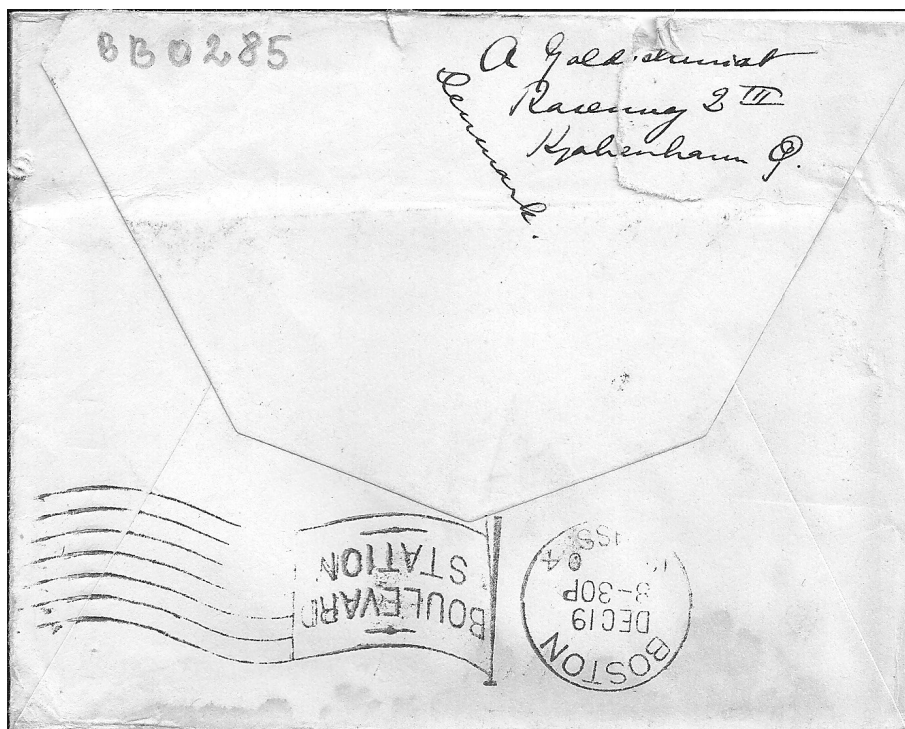 BB0285
A Goldschmidt
Rosenvg 2 III
Kjøbenhavn Ø.
Denmark.
BOULEVARD
STATION
BOSTON
DEC 19
-30P